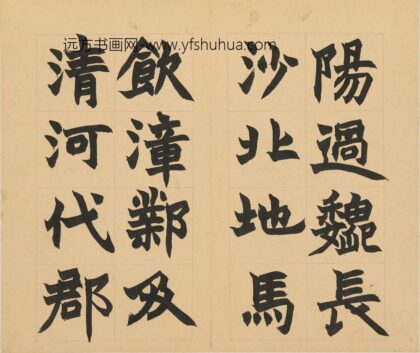 远方书画网-www.yfshuhua.com
陽過魏長
沙北地馬
飲漳鄴及
清河代郡